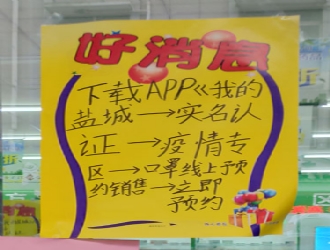 好消息
下载APP《我的
盐城→实名认
证→疫情专
区→口罩线上预
约销售→立即
预约